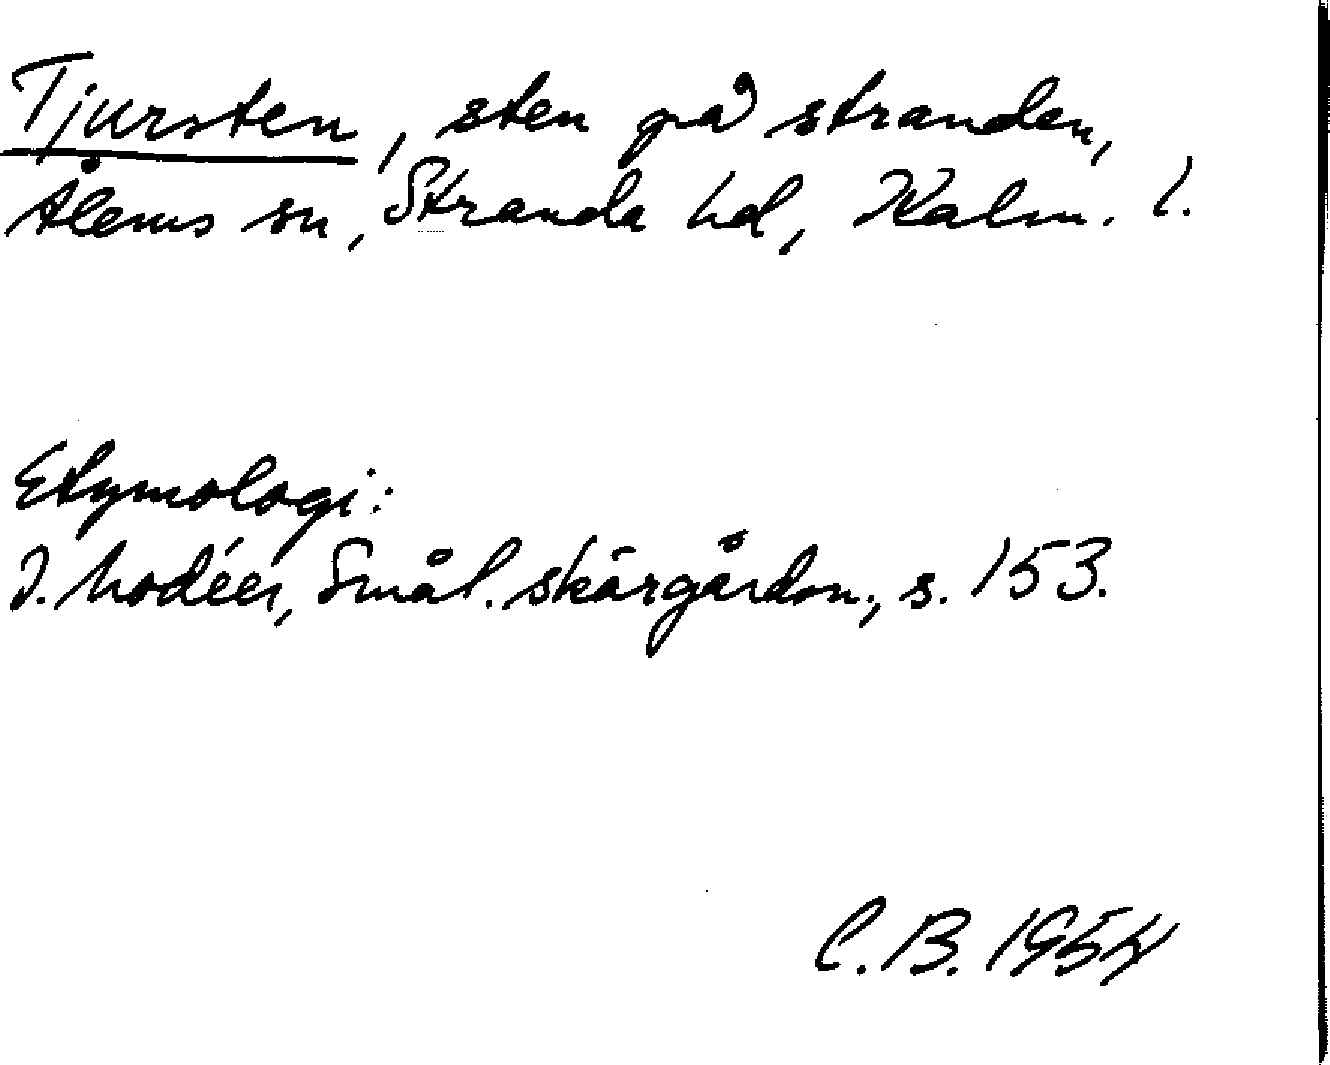 Tjursten, sten på stranden,
Ålems sn, Stranda hd, Kalm. l.
Etymologi:
I. Modéer, Smål. skärgårdsn., s. 153.
C. B. 1954